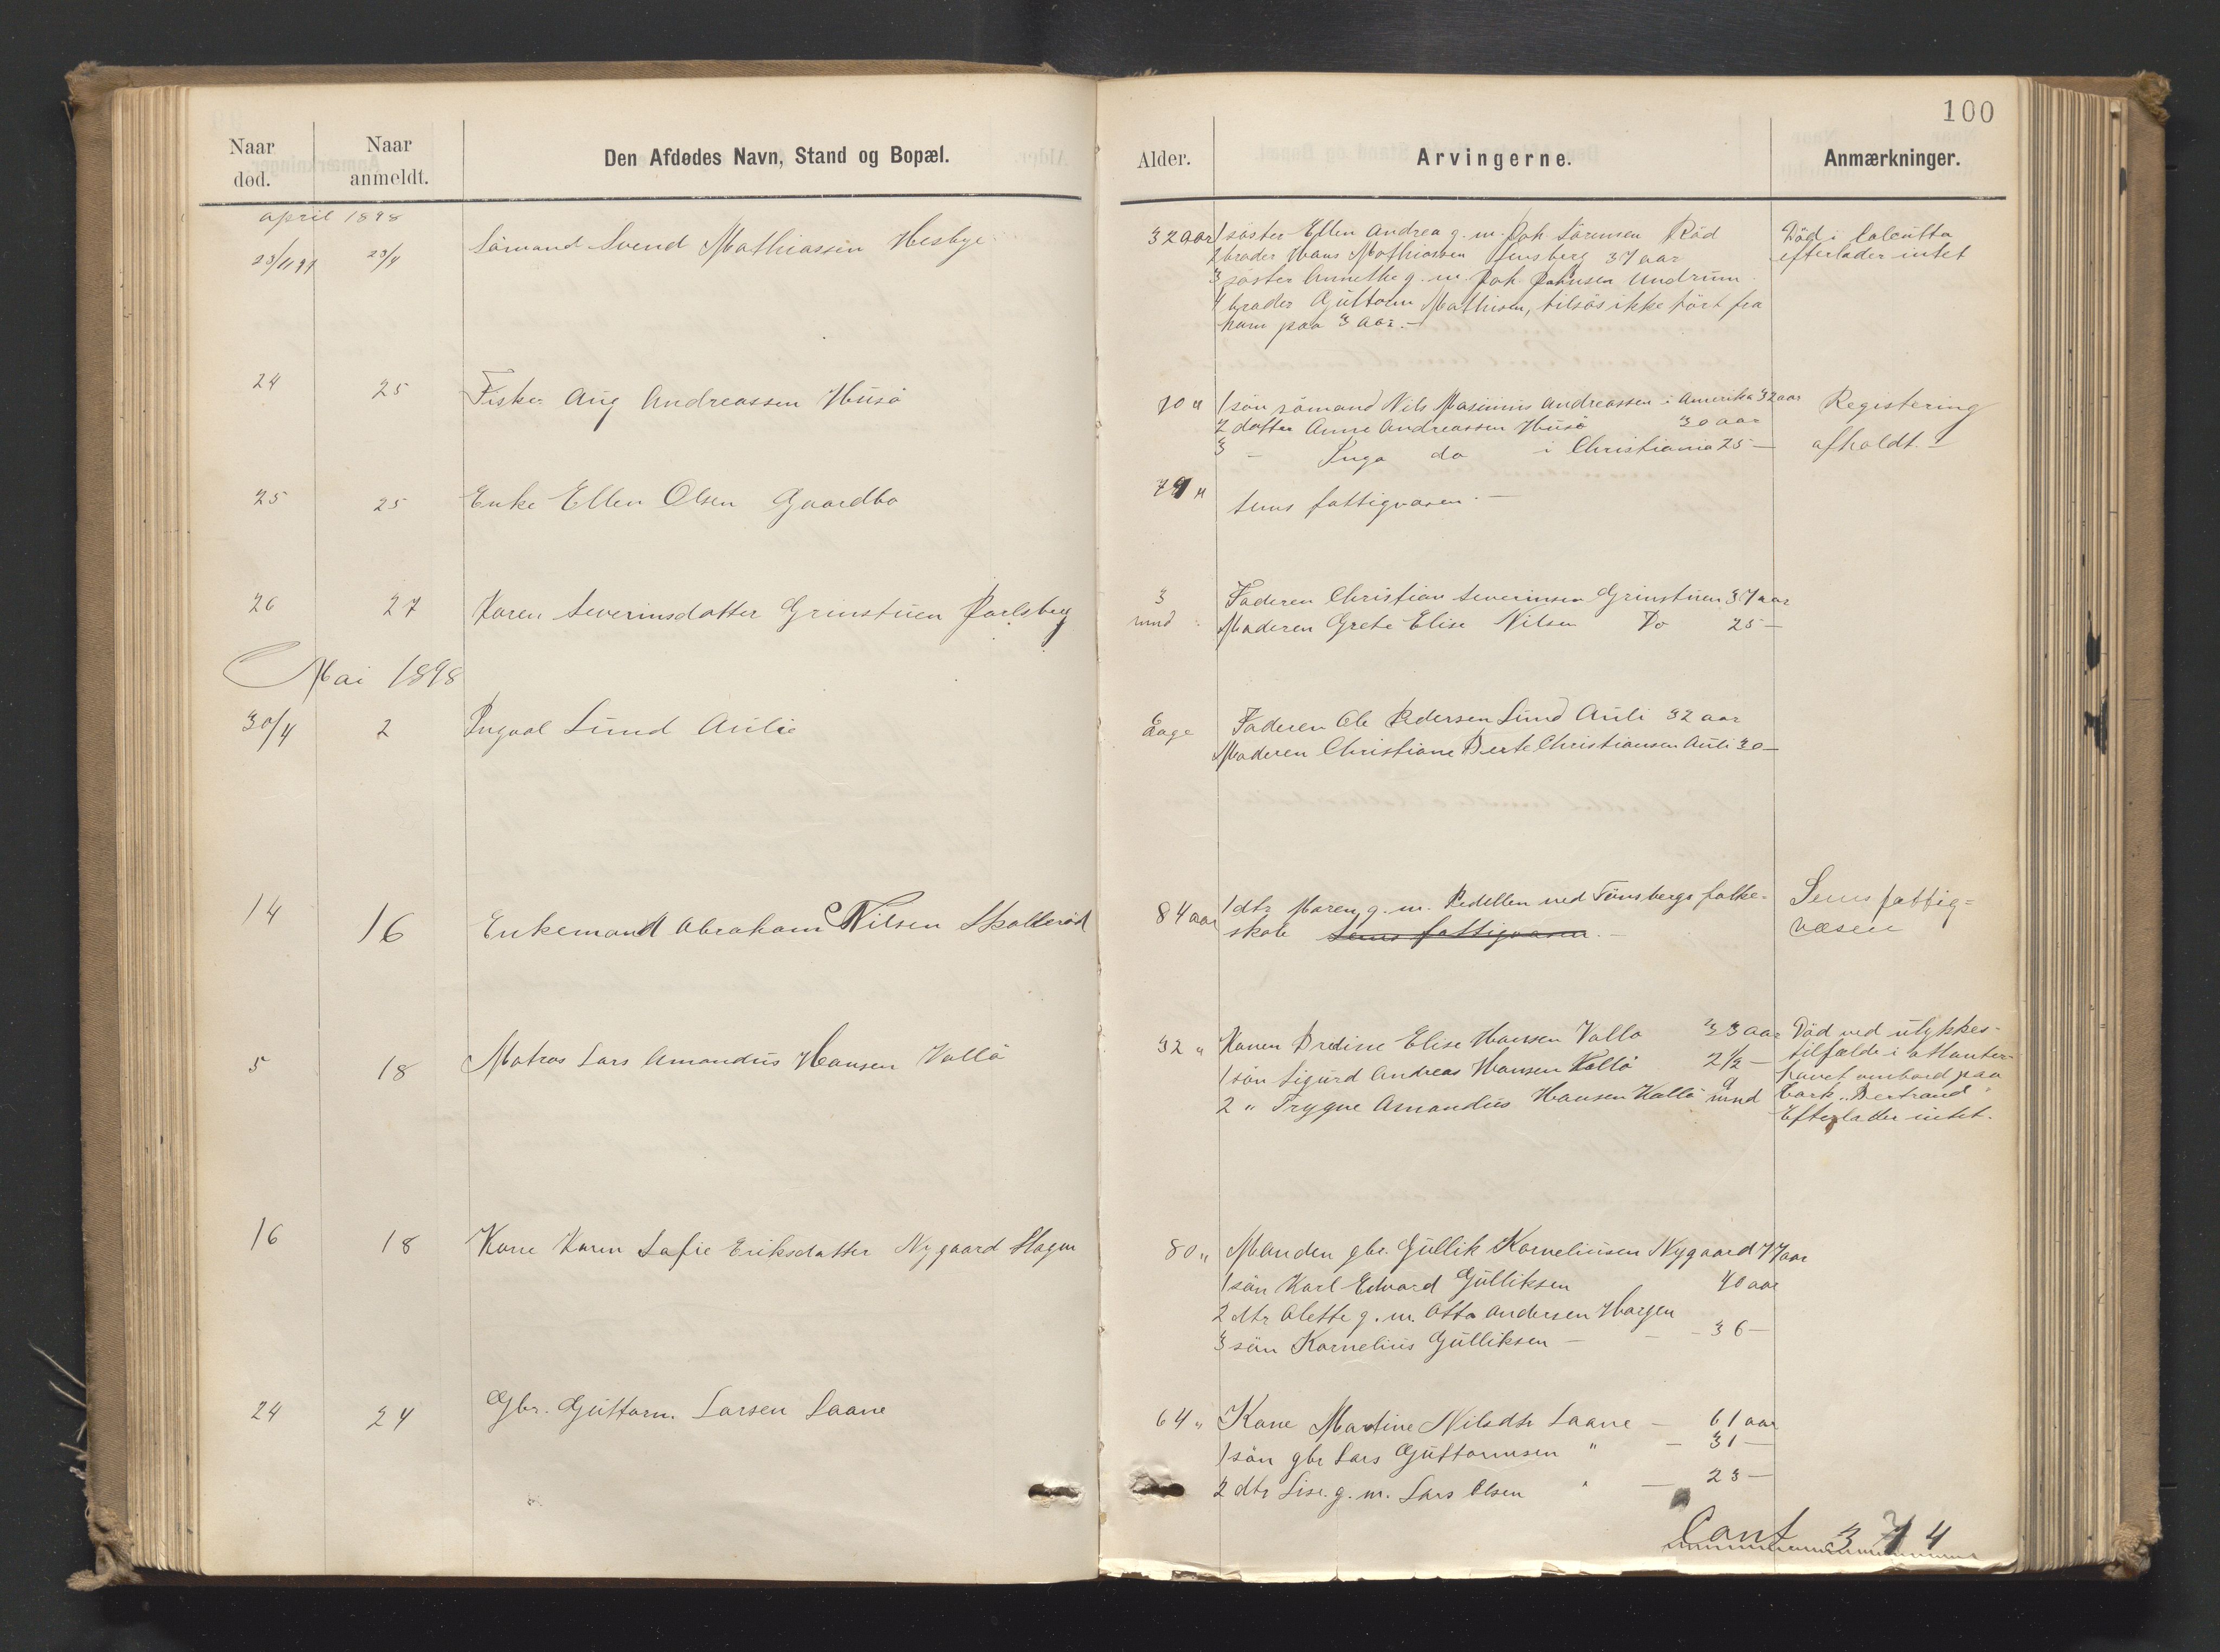 100
Naar død. Naar anmeldt. Den Afdødes Navn, Stand og Bopæl. Alder. Arvingerne. Anmærkninger.
april 1898
23/11 97 23/4 Sömand Svend Mathiassen Hesbye 32 aar 1 söster Ellen Andrea g. m. Joh. Sörensen Röd Död i Calcutta
2 broder Hans Mathiassen Tönsberg 37 aar efterlader intet
3 söster Annethe g. m. Joh. Johnsen Undrum
4 broder Guttorm Mathisen, tilsös ikke hört fra
ham paa 3 aar. —
24 25 Fisker Aug Andreassen Husö 70 " 1 sön sömand Nils Maximus Andreassen i Amerika 32 aar Registering
2 datter Anne Andreassen Husö 30 aar
3 — Inga do i Christiania 25 — afholdt.
25 25 Enke Ellen Olsen Gaardbo " Sems fattigvæsen. —
26 27 Karen Severinsdatter Grinstuen Jarlsberg 3 Faderen Christian Severinsen Grinstuen 37 aar
mnd Moderen Grete Elise Nilsen Do 25 —
Mai 1898
30/4 2 Ingval Lund Aulie Dage Faderen Ole Pedersen Lund Auli 32 aar
Moderen Christiane Berte Christiansen Auli 30 —
14 16 Enkemand Abraham Nilsen Skalleröd 84 aar 1 dtr Maren g. m. Pedellen ved Tönsbergs folke- Sems fattig=
skole Sems fattigvæsen. — væsen
5 18 Matros Lars Amandus Hansen Vallö 32 " Konen Bredine Elise Hansen Vallö 33 aar Död ved ulykkes-
1 sön Sigurd Andreas Hansen Vallö 2 1/2 — tilfælde i Atlanter-
havet ombord paa
2 " Trygve Amandus Hansen Vallö 9 mnd bark "Bertrand"
Efterlader intet.
16 18 Kone Karen Sofie Eriksdatter Nygaard Slagen 80 " Manden gbr. Gullik Korneliusen Nygaard 77 aar
1 sön Karl Edvard Gulliksen 40 aar
2 dtr Olette g. m. Otto Andersen Horgen
3 sön Kornelius Gulliksen — — 36 —
24 24 Gbr. Guttorm Larsen Laane 64 " Kone Martine Nilsdtr Laane — 61 aar
1 sön gbr Lars Guttormsen " — 31 —
2 dtr Lise g. m. Lars Olsen " — 23 —